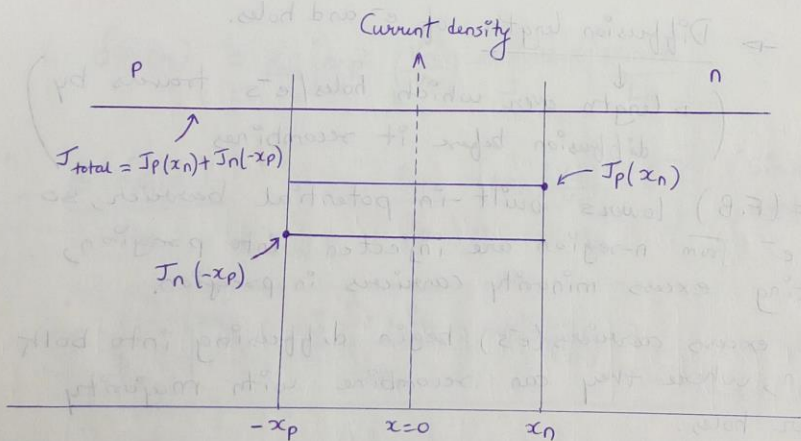 Current density
p n
J total = Jp(xn) + Jn(-xp)
Jp(xn)
Jn(-xp)
-xp x=0 xn